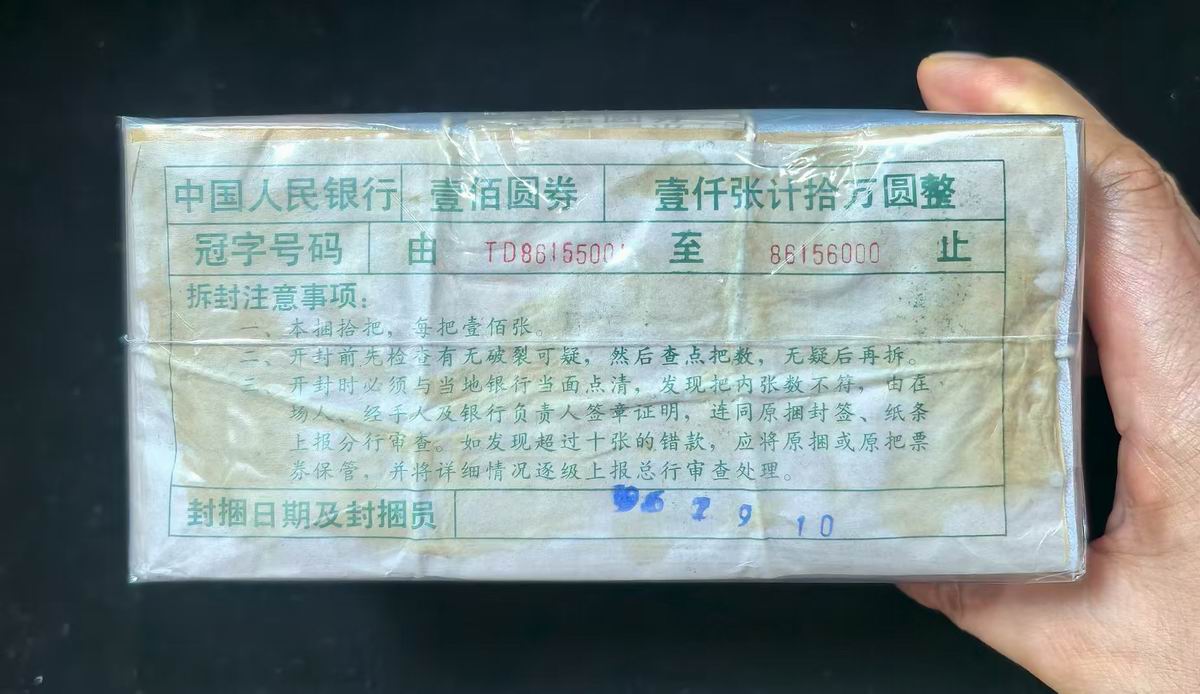 中国人民银行 壹佰圆券 壹仟张计拾万圆整
冠字号码 由 TD8615500 至 86156000 止
拆封注意事项：
一、本捆拾把，每把壹佰张。
二、开封前先检查有无破裂可疑，然后查点把数，无疑后再拆。
三、开封时必须与当地银行当面点清，发现把内张数不符，由在
场人、经手人及银行负责人签章证明，连同原捆封签、纸条
上报分行审查。如发现超过十张的错款，应将原捆或原把票
券保管，并将详细情况逐级上报总行审查处理。
封捆日期及封捆员 96 9 10